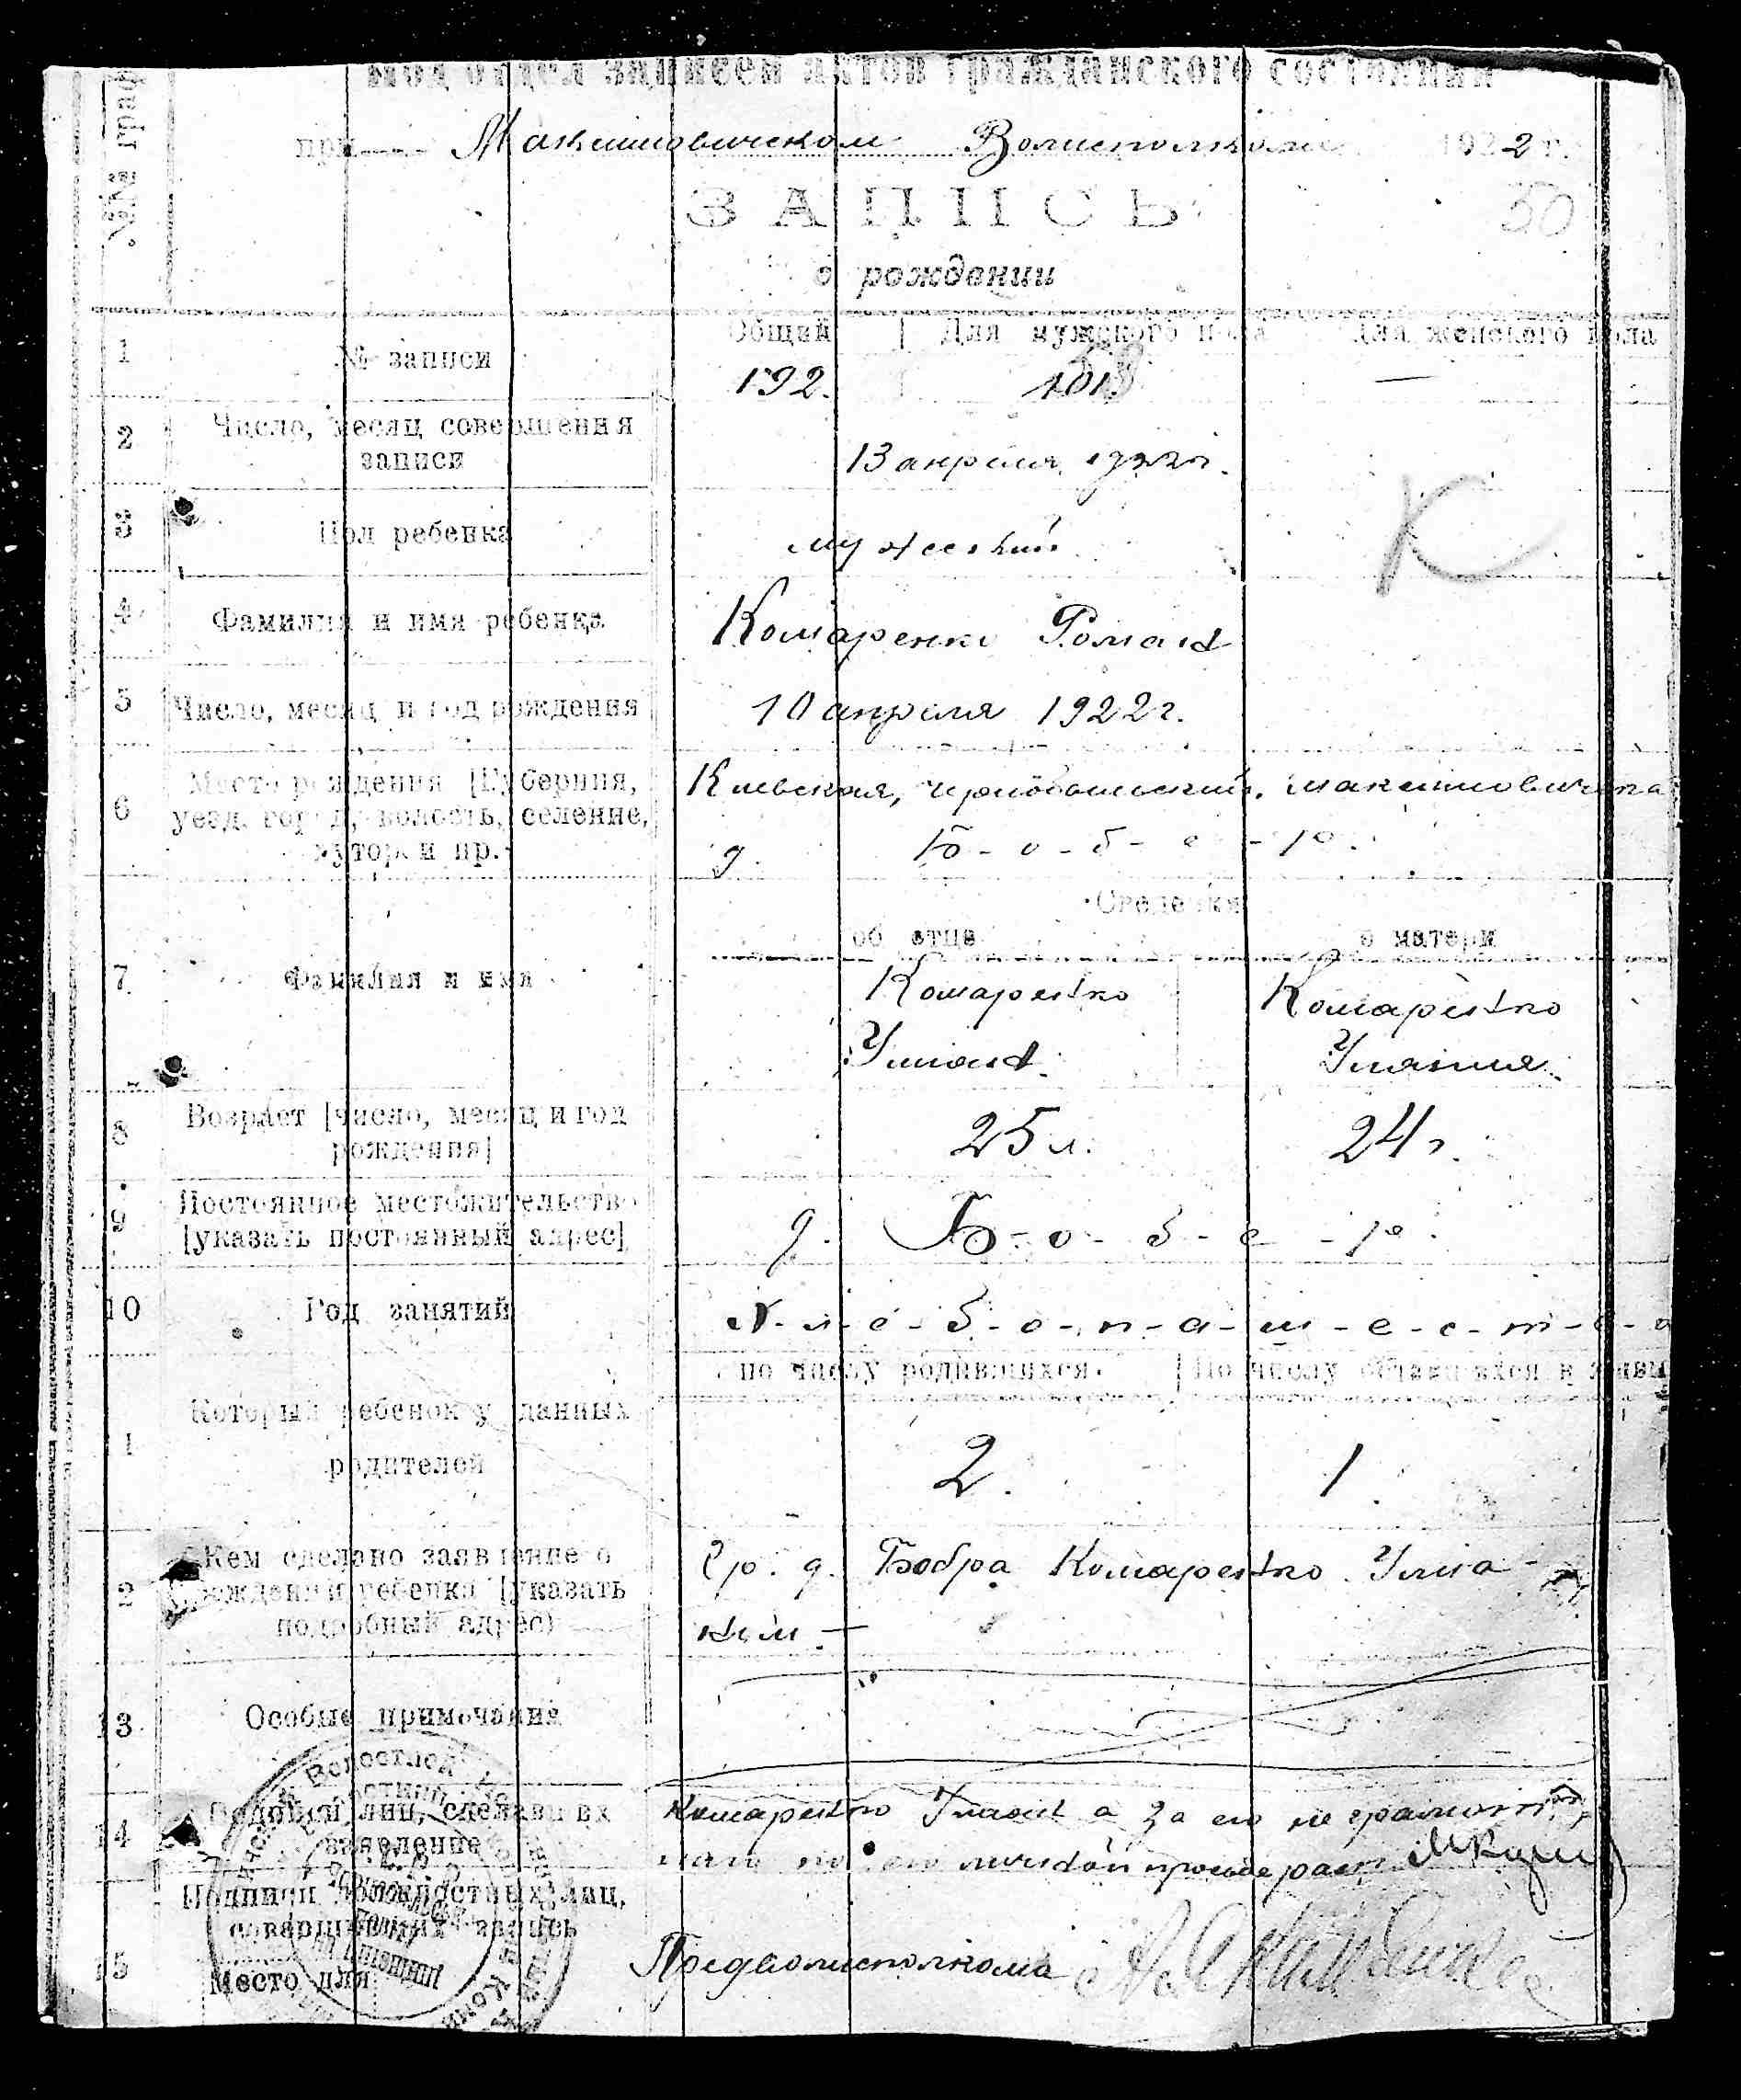 №№ граф
под отдел записей актов гражданского состояния
при Максимовичском Волисполкоме 1922 г.
50
ЗАПИСЬ
о рождении
Общий Для мужского пола Для женского пола
1 № записи 192. 101 —
2 Число, месяц совершения
записи 13 апреля 1922 г.
К
3 Пол ребенка мужеский
4 Фамилия и имя ребенка Комаренко Роман
5 Число, месяц и год рождения 10 апреля 1922 г.
6 Место рождения [Губерния,
уезд, город, волость, селение,
хутор и пр. Киевская, Чернобыльский, Максимовичска
д. Б-о-б-е-р.
Сведения
об отце о матери
7 Фамилия и имя Комаренко Комаренко
Улиан Уляния
8 Возраст [число, месяц и год
рождения] 25 л. 24 г.
9 Постоянное местожительство
[указать постоянный адрес] д. Б-о-б-е-р.
10 Род занятий Х-л-е-б-о-п-а-ш-е-с-т-в-о
по числу родившихся. По числу оставшихся в живы
11 Который ребенок у данных
родителей 2. 1.
12 Кем сделано заявление о
рождении ребенка [указать
подробный адрес) Гр. д. Бобра Комаренко Улиа-
ном —
13 Особые примечания
14 Подписи лиц, сделавших
заявление Комаренко Улиан а за его неграмотн
по его личной прозьбе расп.
Подписи должностных лиц,
совершивших запись
15 Место для Предволисполкома